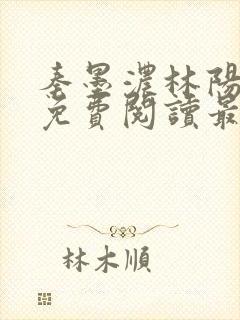 秦墨濃林陽
免費閱讀最
林木順